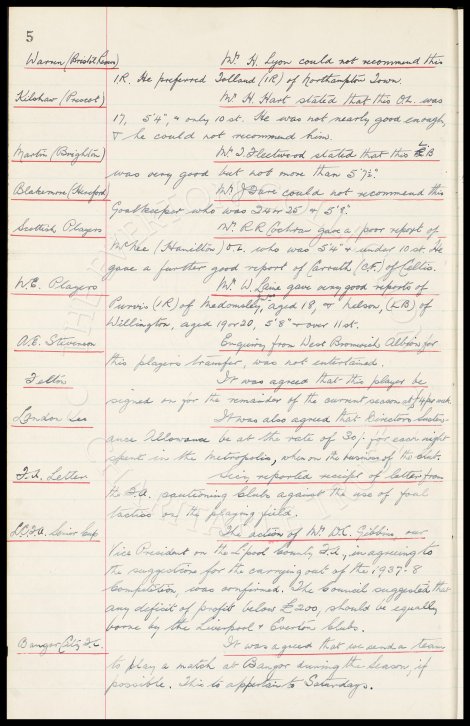 5
Warren (Bristol Rovers) Mr. H. Lyon could not recommend this
I.R. He preferred Tolland (I.R) of Northampton Town.
Kilshaw (Prescot) Mr. H. Hart stated that this O.L. was
17, 5'4", & only 10 st. He was not nearly good enough,
& he could not recommend him.
Martin (Brighton) Mr. J. Fleetwood stated that this L B
was very good but not more than 5'7½".
Blakemore (Hereford) Mr. J. could not recommend this
Goalkeeper who was 24 or 25 & 5'8".
Scottish Players Mr. R.R. Cochran gave a poor report of
McKee (Hamilton) O.L. who was 5'4" & under 10 st. He
gave a further good report of Carruth (C.F.) of Celtic.
N.E. Players Mr. W. Lane gave very good reports of
Purvis (I R) of Medomsley, aged 18, & Nelson, (L B) of
Willington, aged 19 or 20, 5'8" & over 11 st.
A.E. Stevenson Enquiry from West Bromwich Albion for
this players transfer, was not entertained.
Felton It was agreed that this player be
signed on for the remainder of the current season at £4 per week.
London It was also agreed that Directors
ance Allowance be at the rate of 30/- for each night
spent in the Metropolis, when on the business of the Club.
F.A. Letter Secy reported receipt of letter from
the F.A. cautioning Clubs against the use of foul
tactics on the playing field.
L.C.F.A. Senior Cup The action of Mr. W.C. Gibbins our
Vice President on the L'pool County F.A., in agreeing to
the suggestions for the carrying out of the 1937-8
Competition, was confirmed. The Council suggested that
any deficit of profit below £200, should be equally
borne by the Liverpool & Everton Clubs.
Bangor City F.C. It was agreed that we send a team
to play a match at Bangor during the season, if
possible. This to appertain to Saturdays.